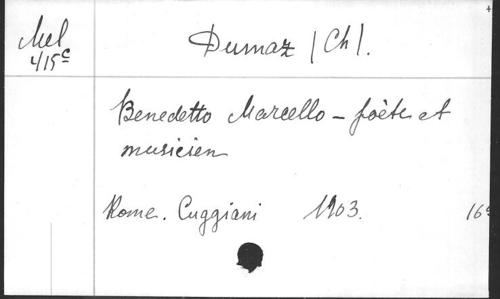 Mel
4/15c
Dumaz (Ch).
Benedetto Marcello – poète et
musicien
Rome. Cuggiani 1903. 16°